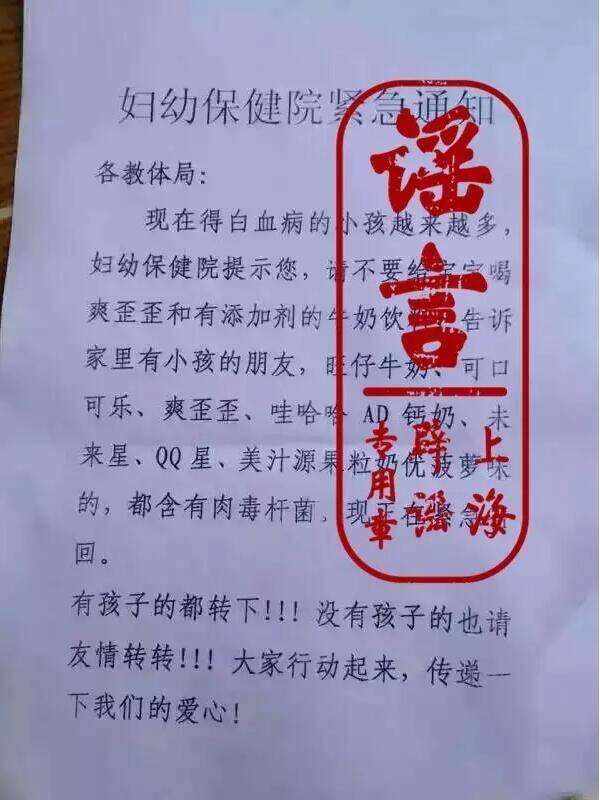 妇幼保健院紧急通知
各教体局：
现在得白血病的小孩越来越多，
妇幼保健院提示您，请不要给宝宝喝
爽歪歪和有添加剂的牛奶饮 告诉
家里有小孩的朋友，旺仔牛奶、可口
可乐、爽歪歪、哇哈哈 AD 钙奶、未
来星、QQ 星、美汁源果粒奶优菠萝味
的，都含有肉毒杆菌，现正在紧急
回。
有孩子的都转下!!! 没有孩子的也请
友情转转!!! 大家行动起来，传递一
下我们的爱心！
谣言
上海
辟谣
专用章